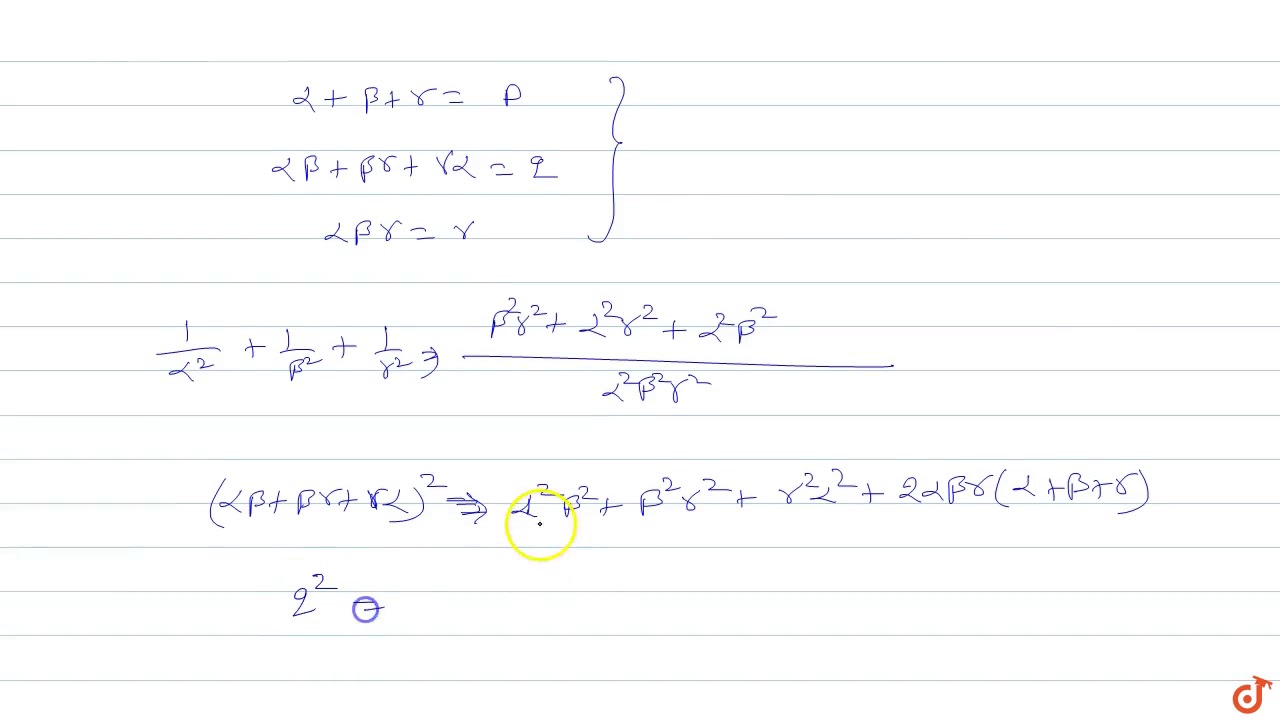 α + β + γ = p
αβ + βγ + γα = q
αβγ = r
1/α² + 1/β² + 1/γ² ⇒ (β²γ² + α²γ² + α²β²)/(α²β²γ²)
(αβ + βγ + γα)² ⇒ α²β² + β²γ² + γ²α² + 2αβγ(α + β + γ)
q² =